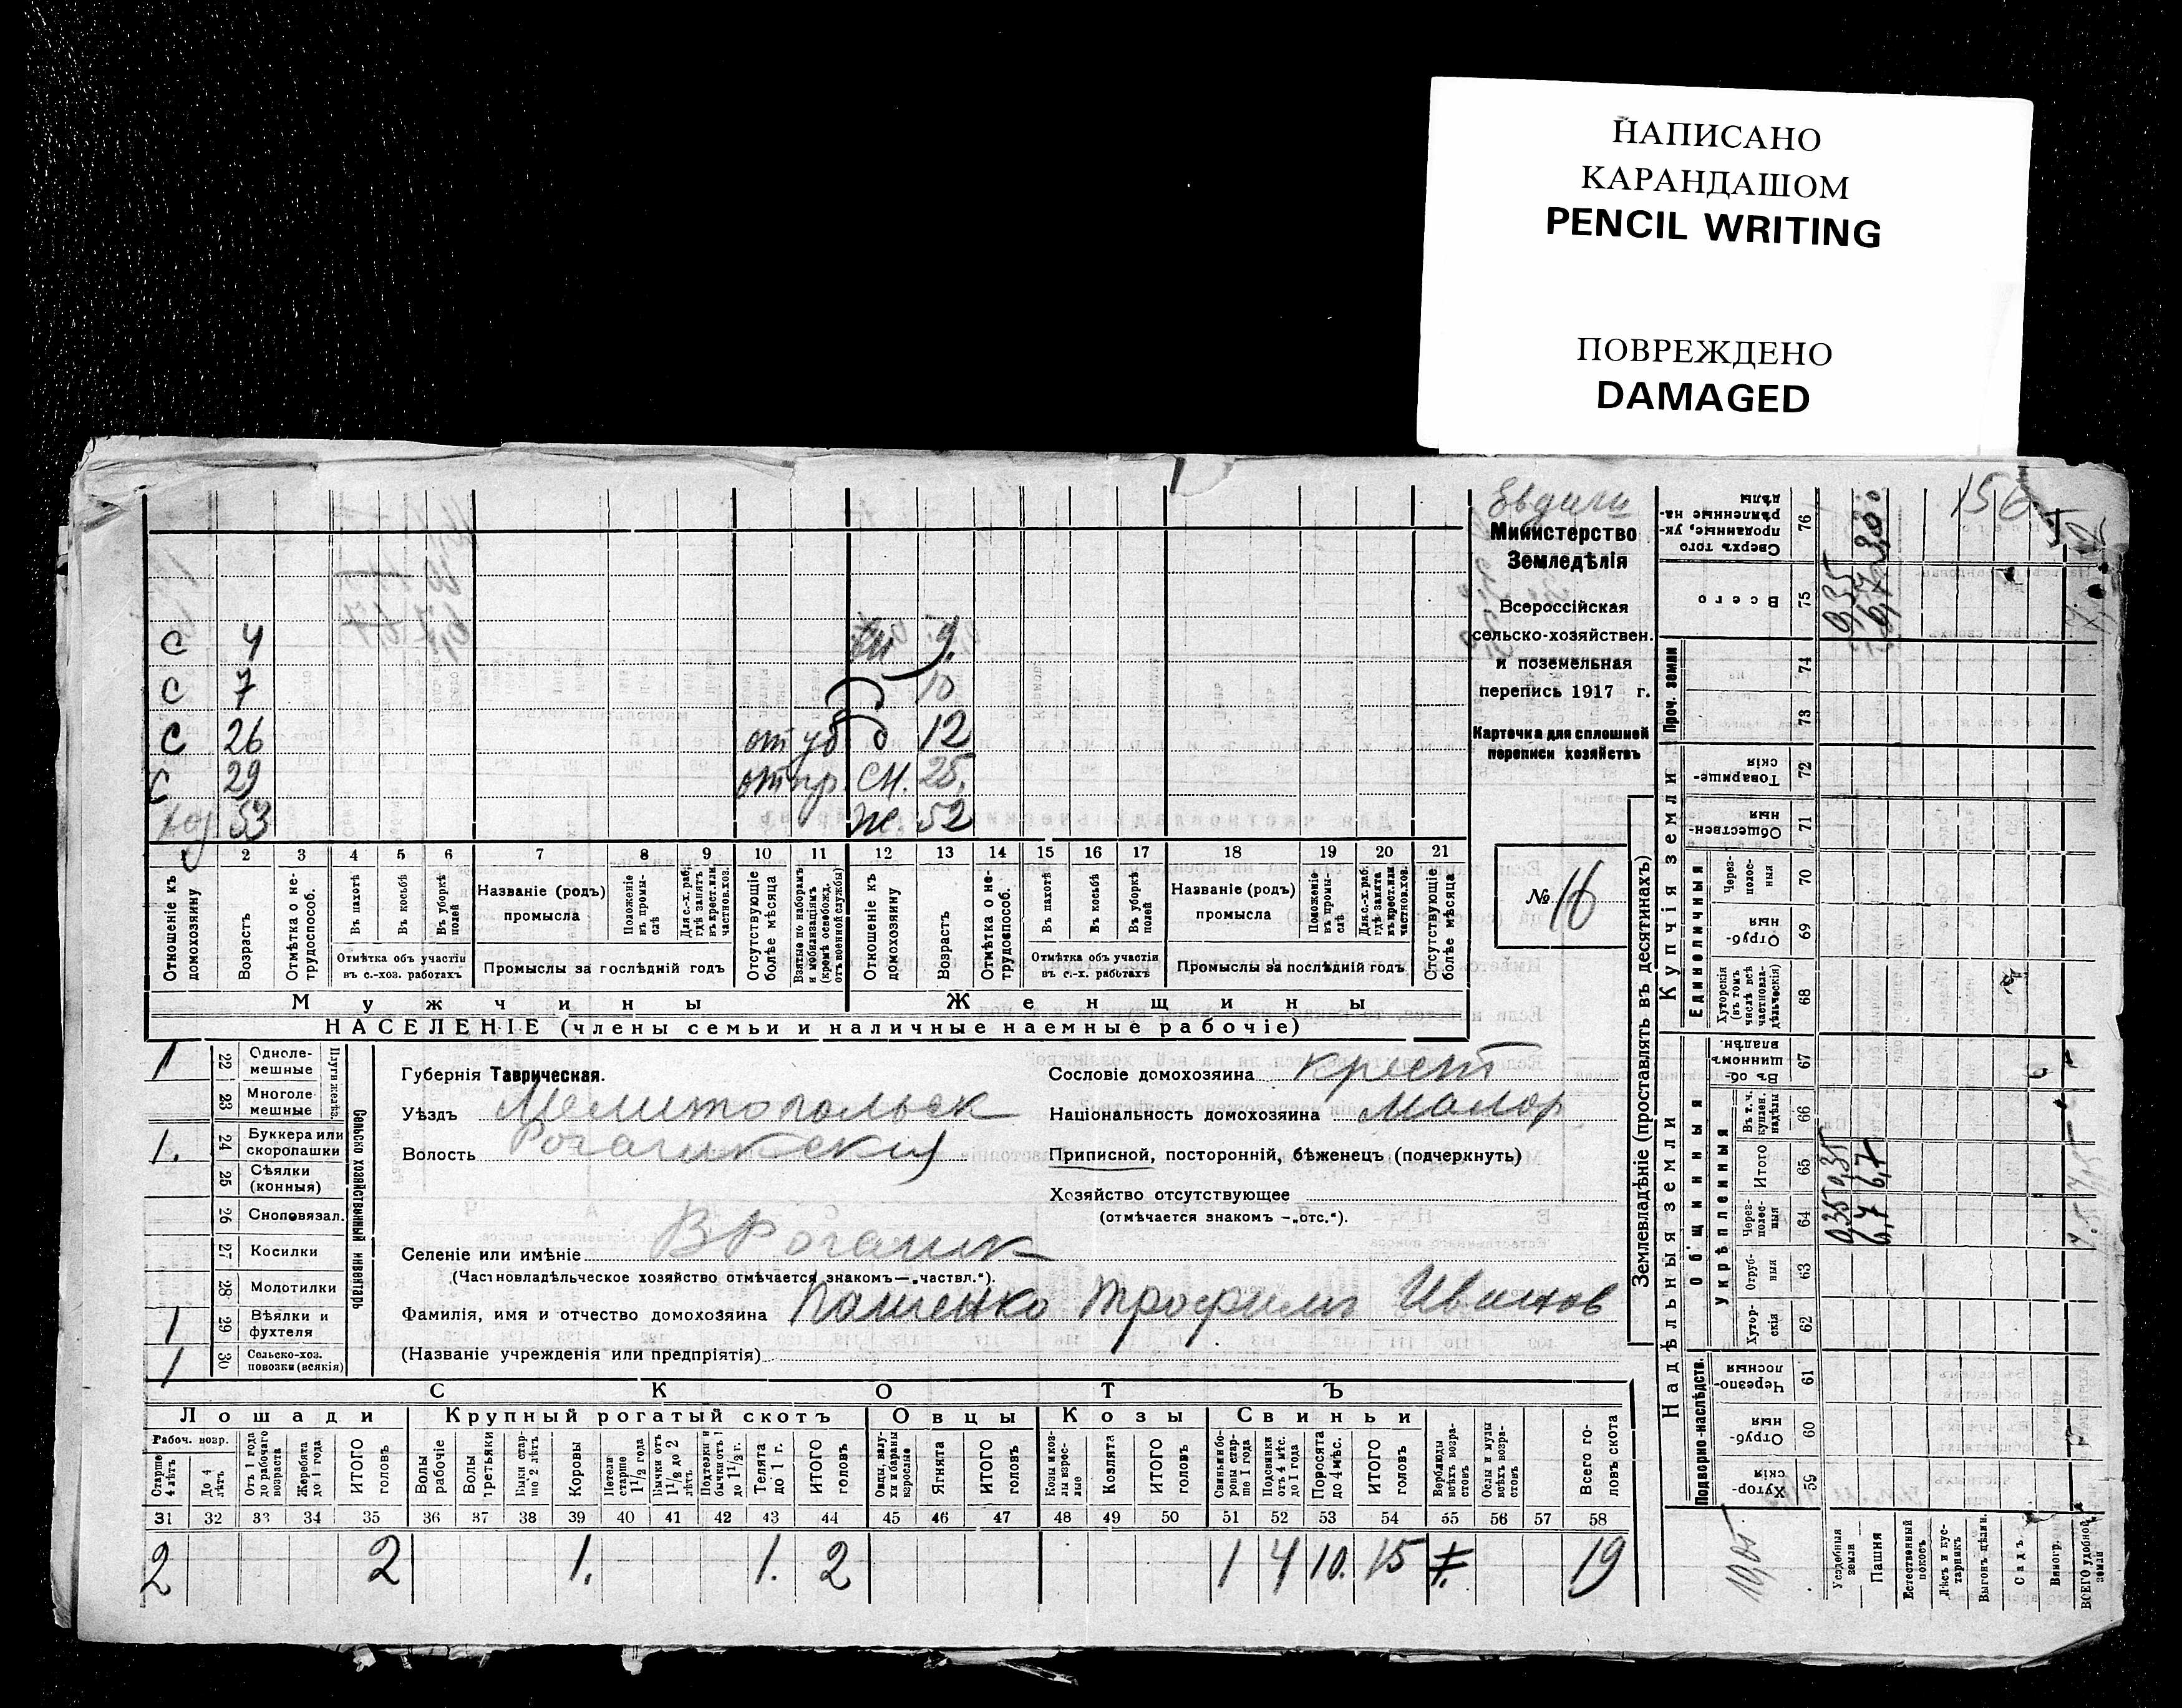 НАПИСАНО
КАРАНДАШОМ
PENCIL WRITING
ПОВРЕЖДЕНО
DAMAGED
156
Министерство
Земледѣлія
Всероссійская
сельско-хозяйствен.
и поземельная
перепись 1917 г.
Карточка для сплошной
переписи хозяйствъ
№ 16
с 4 9.
с 7 10
с 26 от уб д 12
с 29 от пр. сн. 25.
хоз 53 же. 52
1 2 3 4 5 6 7 8 9 10 11 12 13 14 15 16 17 18 19 20 21
Отношеніе къ домохозяину
Возрастъ
Отмѣтка о нетрудоспособ.
Въ пахотѣ
Въ косьбѣ
Въ уборкѣ полей
Отмѣтка объ участіи въ с.-хоз. работахъ
Названіе (родъ) промысла
Положеніе въ промыслѣ
Для с.-х. раб. гдѣ занятъ въ крест. или частновл. хоз.
Промыслы за послѣдній годъ
Отсутствующіе болѣе мѣсяца
Взятые по наборамъ и мобилизаціямъ (кромѣ освобожд. отъ военной службы)
Отношеніе къ домохозяину
Возрастъ
Отмѣтка о нетрудоспособ.
Въ пахотѣ
Въ косьбѣ
Въ уборкѣ полей
Отмѣтка объ участіи въ с.-х. работахъ
Названіе (родъ) промысла
Положеніе въ промыслѣ
Для с.-х. раб. гдѣ занята въ крест. или частновл. хоз.
Промыслы за послѣдній годъ
Отсутствующіе болѣе мѣсяца
Мужчины Женщины
НАСЕЛЕНІЕ (члены семьи и наличные наемные рабочіе)
1 22 Одноле-мешные
23 Многоле-мешные
Плуги желѣз.
1. 24 Буккера или скоропашки
25 Сѣялки (конныя)
26 Сноповязал.
27 Косилки
28 Молотилки
1 29 Вѣялки и фухтеля
1 30 Сельско-хоз. повозки (всякія)
Сельско хозяйственный инвентарь
Губернія Таврическая.
Уѣздъ Мелитопольск
Волость Рогачикския
Селеніе или имѣніе В Рогачик
(Частновладѣльческое хозяйство отмѣчается знакомъ—„частвл.“).
Фамилія, имя и отчество домохозяина Пащенко Трофимъ Иванов
(Названіе учрежденія или предпріятія)
Сословіе домохозяина крест
Національность домохозяина Малор
Приписной, посторонній, бѣженецъ (подчеркнуть)
Хозяйство отсутствующее
(отмѣчается знакомъ —„отс.“).
СКОТЪ
Лошади Крупный рогатый скотъ Овцы Козы Свиньи
Рабоч. возр.
Старше 4 лѣтъ
До 4 лѣтъ
Отъ 1 года до рабочаго возраста
Жеребята до 1 года
ИТОГО головъ
Волы рабочіе
Волы третьяки
Быки старше 2 лѣтъ
Коровы
Нетели старше 1 1/2 года
Бычки отъ 1 1/2 до 2 лѣтъ
Подтелки и бычки отъ 1 до 1 1/2 г.
Телята до 1 г.
ИТОГО головъ
Овцы, валухи и бараны взрослые
Ягнята
ИТОГО головъ
Козы и козлы взрослые
Козлята
ИТОГО головъ
Свиньи и боровы старше 1 года
Подсвинки отъ 4 мѣс. до 1 года
Поросята до 4 мѣс.
ИТОГО головъ
Верблюды всѣхъ возрастовъ
Ослы и мулы всѣхъ возрастовъ
Всего головъ скота
31 32 33 34 35 36 37 38 39 40 41 42 43 44 45 46 47 48 49 50 51 52 53 54 55 56 57 58
2 2 1. 1. 2 1 4 10. 15 19
Землевладѣніе (проставлять въ десятинахъ)
Купчія земли
Надѣльныя земли
Сверхъ того проданные, укрѣпленные надѣлы 76
Всего 75
Проч. земли 74 73
Товарищескія 72
Общественныя 71
Единоличныя
Черезполосныя 70
Отрубныя 69
Хуторскія (въ томъ числѣ всѣ частновладѣльческія) 68
Общинныя
Въ общинномъ владѣн. 67
Укрѣпленныя
Въ т. ч. куплен. надѣлы 66
Итого 65 0,35 6,7
Черезполосныя 64 0,35 6,7
Отрубныя 63
Хуторскія 62
Подворно-наслѣдств.
Черезполосныя 61
Отрубныя 60
Хуторскія 59
Усадебныя земли
Пашня
Естественный покосъ
Лѣсъ и кустарникъ
Выгонъ цѣлин.
Садъ
Виногр.
ВСЕГО удобной земли